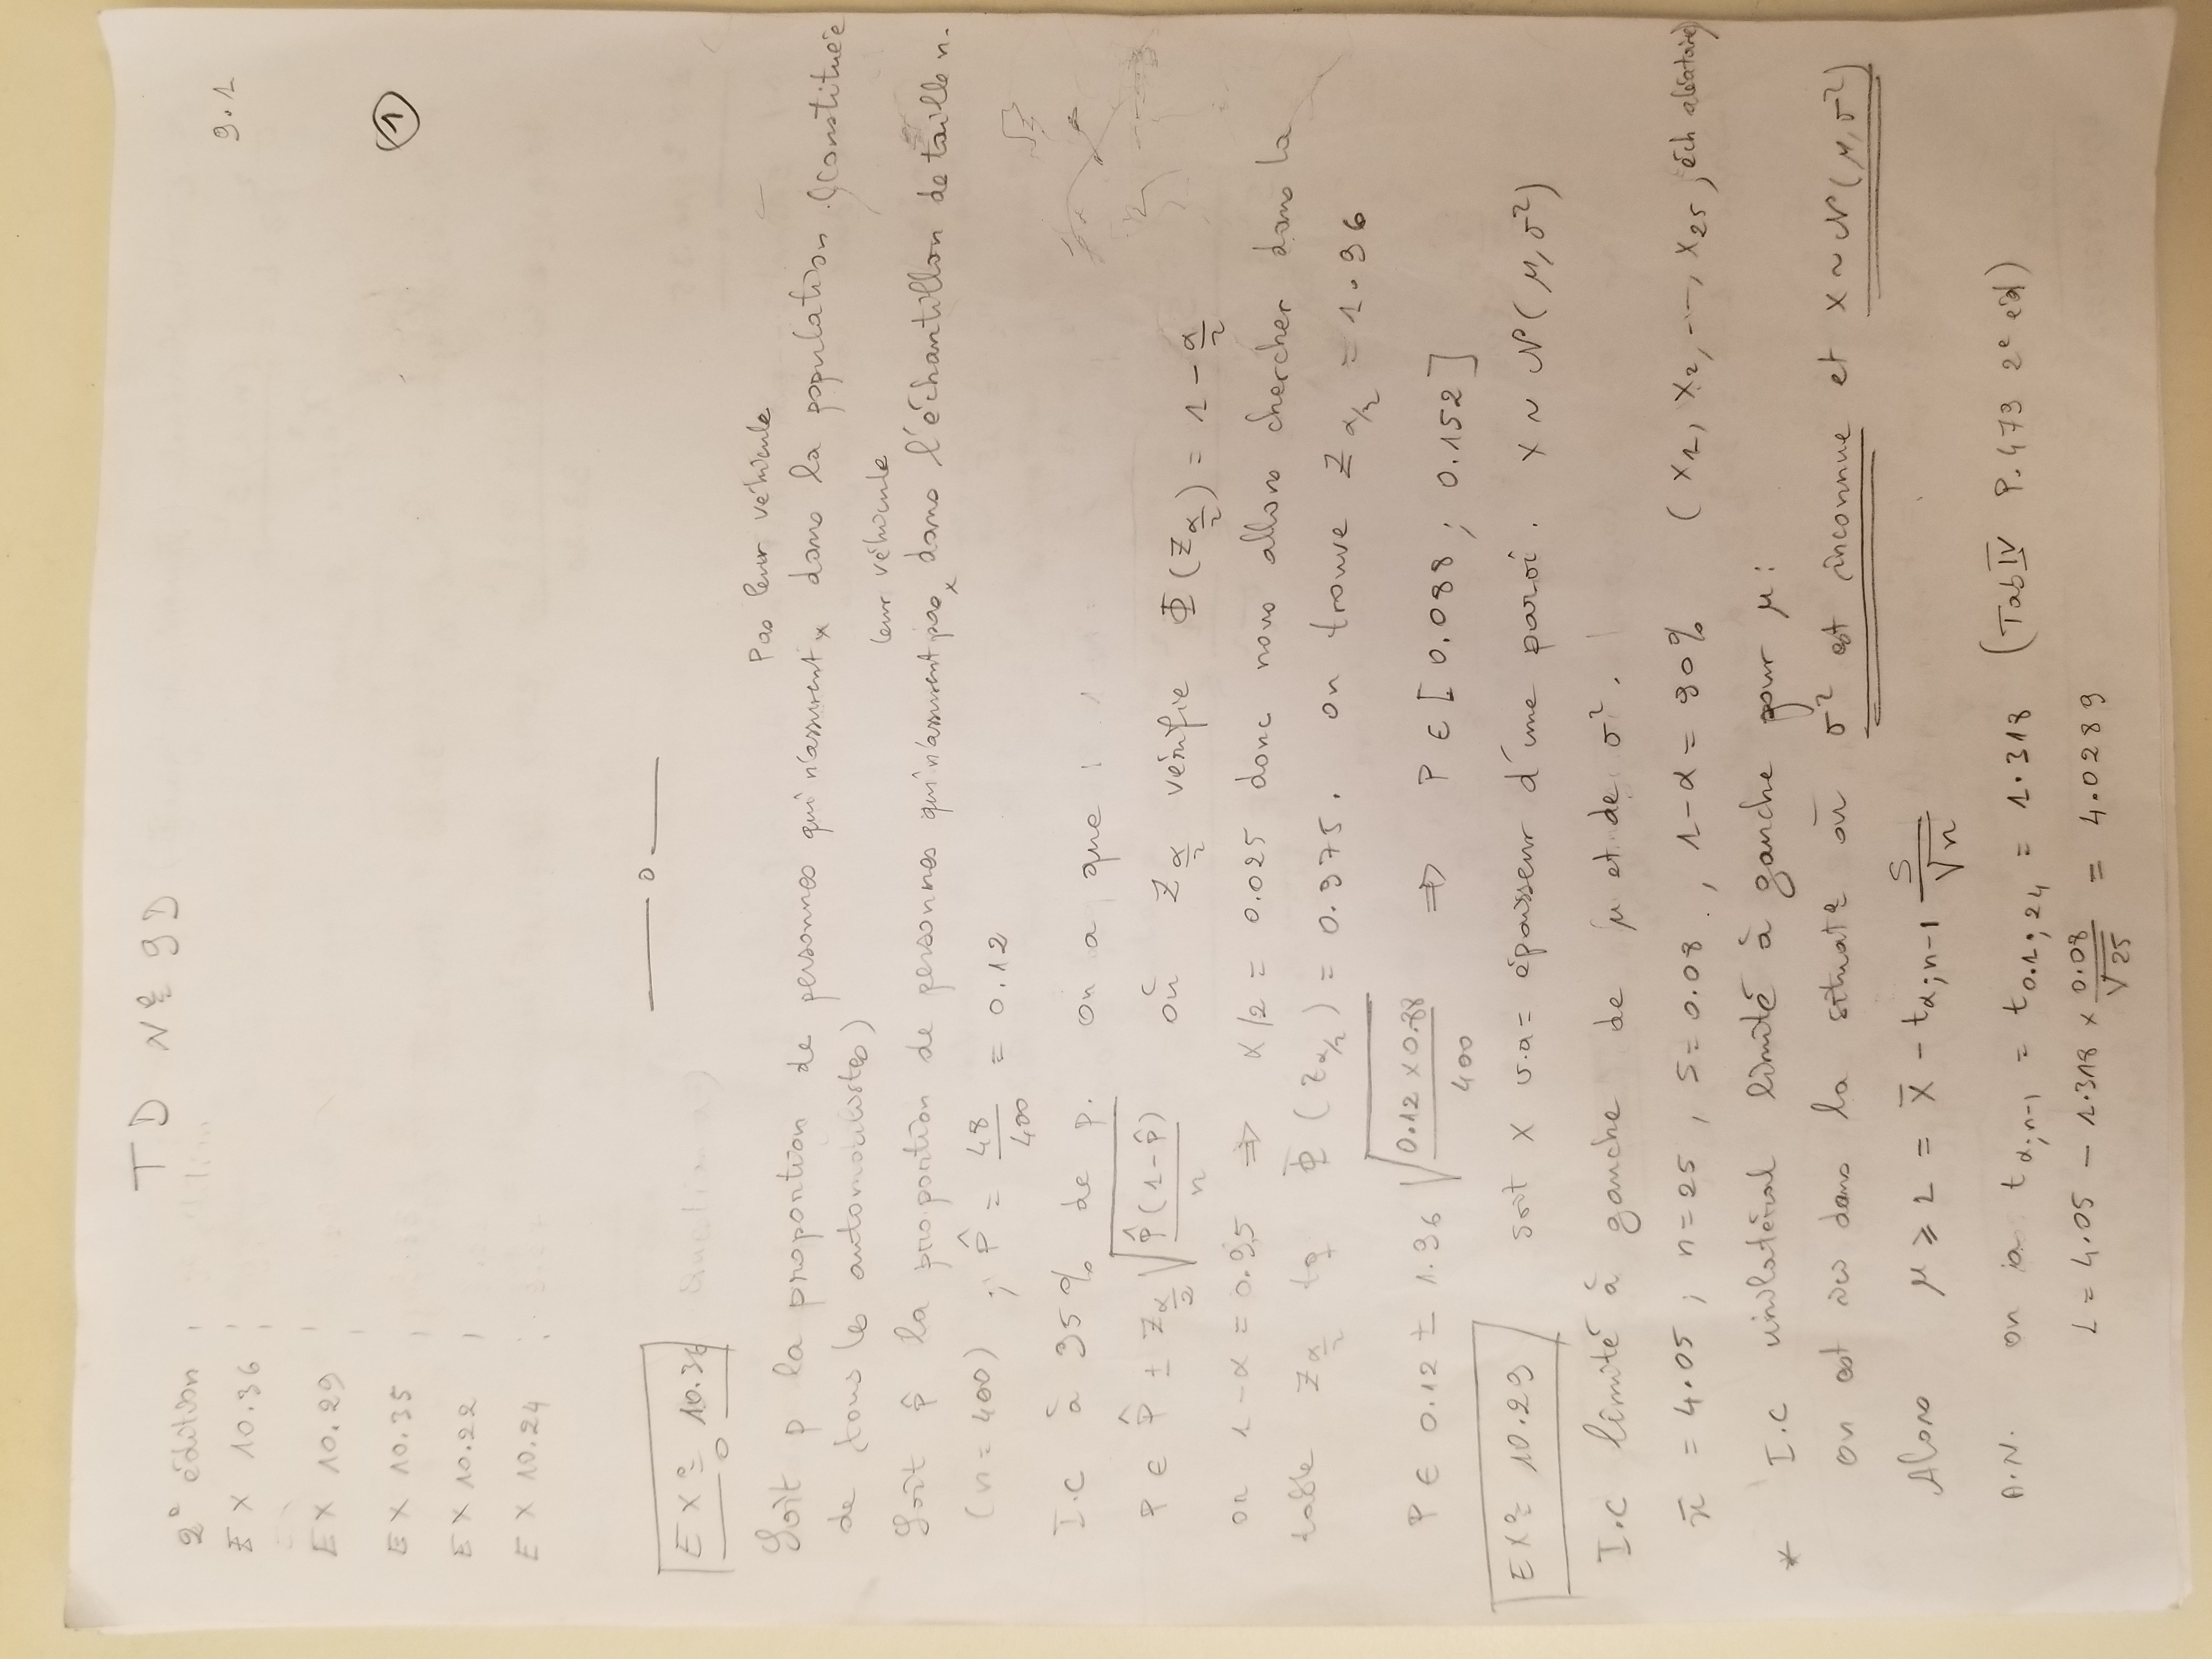 TD Nº 9D
2° édition
9.1
EX 10.36
EX 10.29
①
EX 10.35
EX 10.22
EX 10.24
EXº 10.36
Soit p la proportion de personnes qui n'assurent pas leur véhicule dans la population (constituée
de tous les automobilistes)
Soit p̂ la proportion de personnes qui n'assurent pas leur véhicule dans l'échantillon de taille n.
(n = 400) ; p̂ = 48/400 = 0.12
I.C à 95% de p. on a que :
P ∈ p̂ ± Z_{α/2} √(p̂(1-p̂)/n) où Z_{α/2} vérifie Φ(Z_{α/2}) = 1 - α/2
or 1-α = 0.95 ⇒ α/2 = 0.025 donc nous allons chercher dans la
table Z_{α/2} tq Φ(Z_{α/2}) = 0.975. on trouve Z_{α/2} = 1.96
P ∈ 0.12 ± 1.96 √(0.12 × 0.88/400) ⇒ P ∈ [0.088 ; 0.152]
EXº 10.29 soit X v.a = épaisseur d'une paroi. X ~ N(μ, σ²)
I.C limité à gauche de μ et de σ².
x̄ = 4.05 ; n=25 , S=0.08 , 1-α = 90% (X₁, X₂, ---, X₂₅ , éch aléatoire)
* I.C unilatéral limité à gauche pour μ :
on est ici dans la situatº où σ² est inconnue et X ~ N(μ, σ²)
Alors μ ⩾ L = X̄ - t_{α;n-1} S/√n
A.N. on a t_{α;n-1} = t_{0.1;24} = 1.318 (Tab IV P.473 2e éd)
L = 4.05 - 1.318 × 0.08/√25 = 4.0289